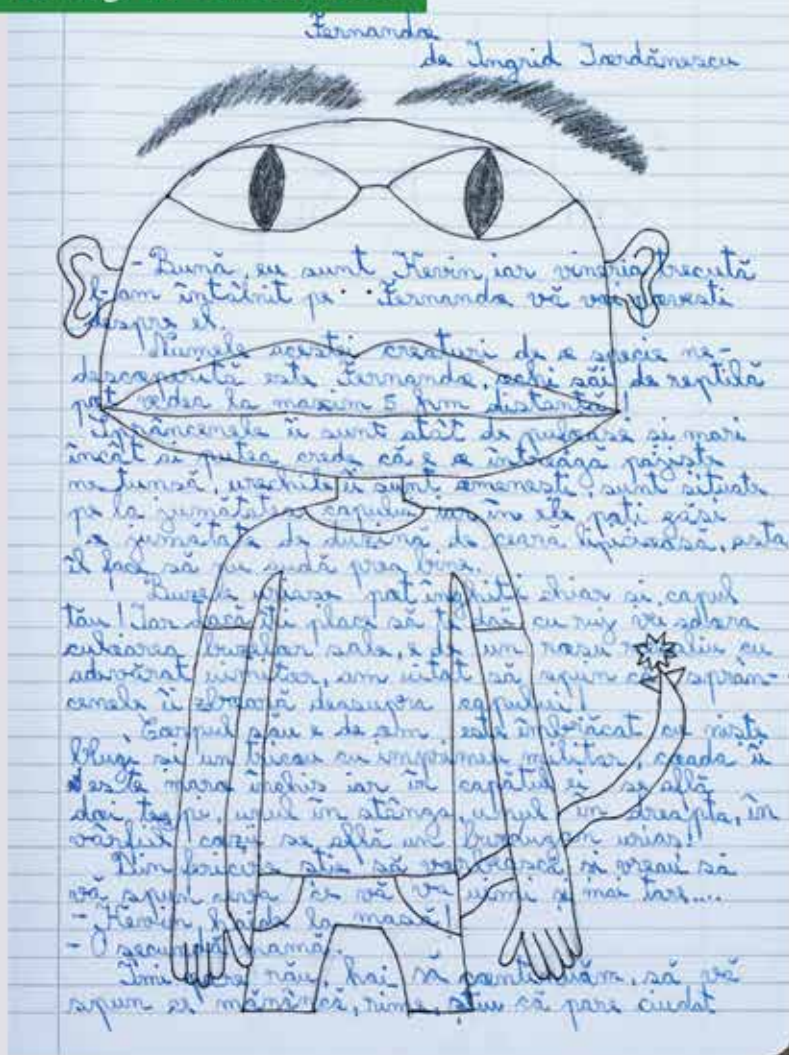 Fernando
de Ingrid Iordănescu
- Bună, eu sunt Kevin iar vinerea trecută
l-am întâlnit pe... Fernando vă voi povesti
despre el.
Numele acestei creaturi de o specie ne-
descoperită este Fernando, ochi săi de reptilă
pot vedea la maxim 5 km distanță!
Sprâncenele îi sunt atât de pufoase și mari
încât ai putea crede că e o întreagă pajiște
ne tunsă, urechile îi sunt omenești, sunt situate
pe la jumătatea capului iar în ele, poți găsi
o jumătate de duzină de ceară lipicioasă, asta
îl face să nu audă prea bine.
Buzele uriașe pot înghiți chiar și capul
tău! Iar dacă îți place să te dai cu ruj vei adora
culoarea buzelor sale, e de un roșu cu
adevărat uimitor, am uitat să spun că sprân-
cenele îi zboară deasupra capului!
Corpul său e de om, este îmbrăcat cu niște
blugi și un tricou cu imprimeu militar, coada îi
este maro închis iar în capătul ei se află
doi țepi, unul în stânga, unul în dreapta, în
vârful cozii se află un buzdugan uriaș!
Din fericire știe să vorbească și vreau să
vă spun ceva ce vă va uimi și mai tare....
- Kevin haide la masă!
- O secundă mamă.
Îmi pare rău, hai să continuăm, să vă
spun ce mănâncă, rime, știu că pare ciudat